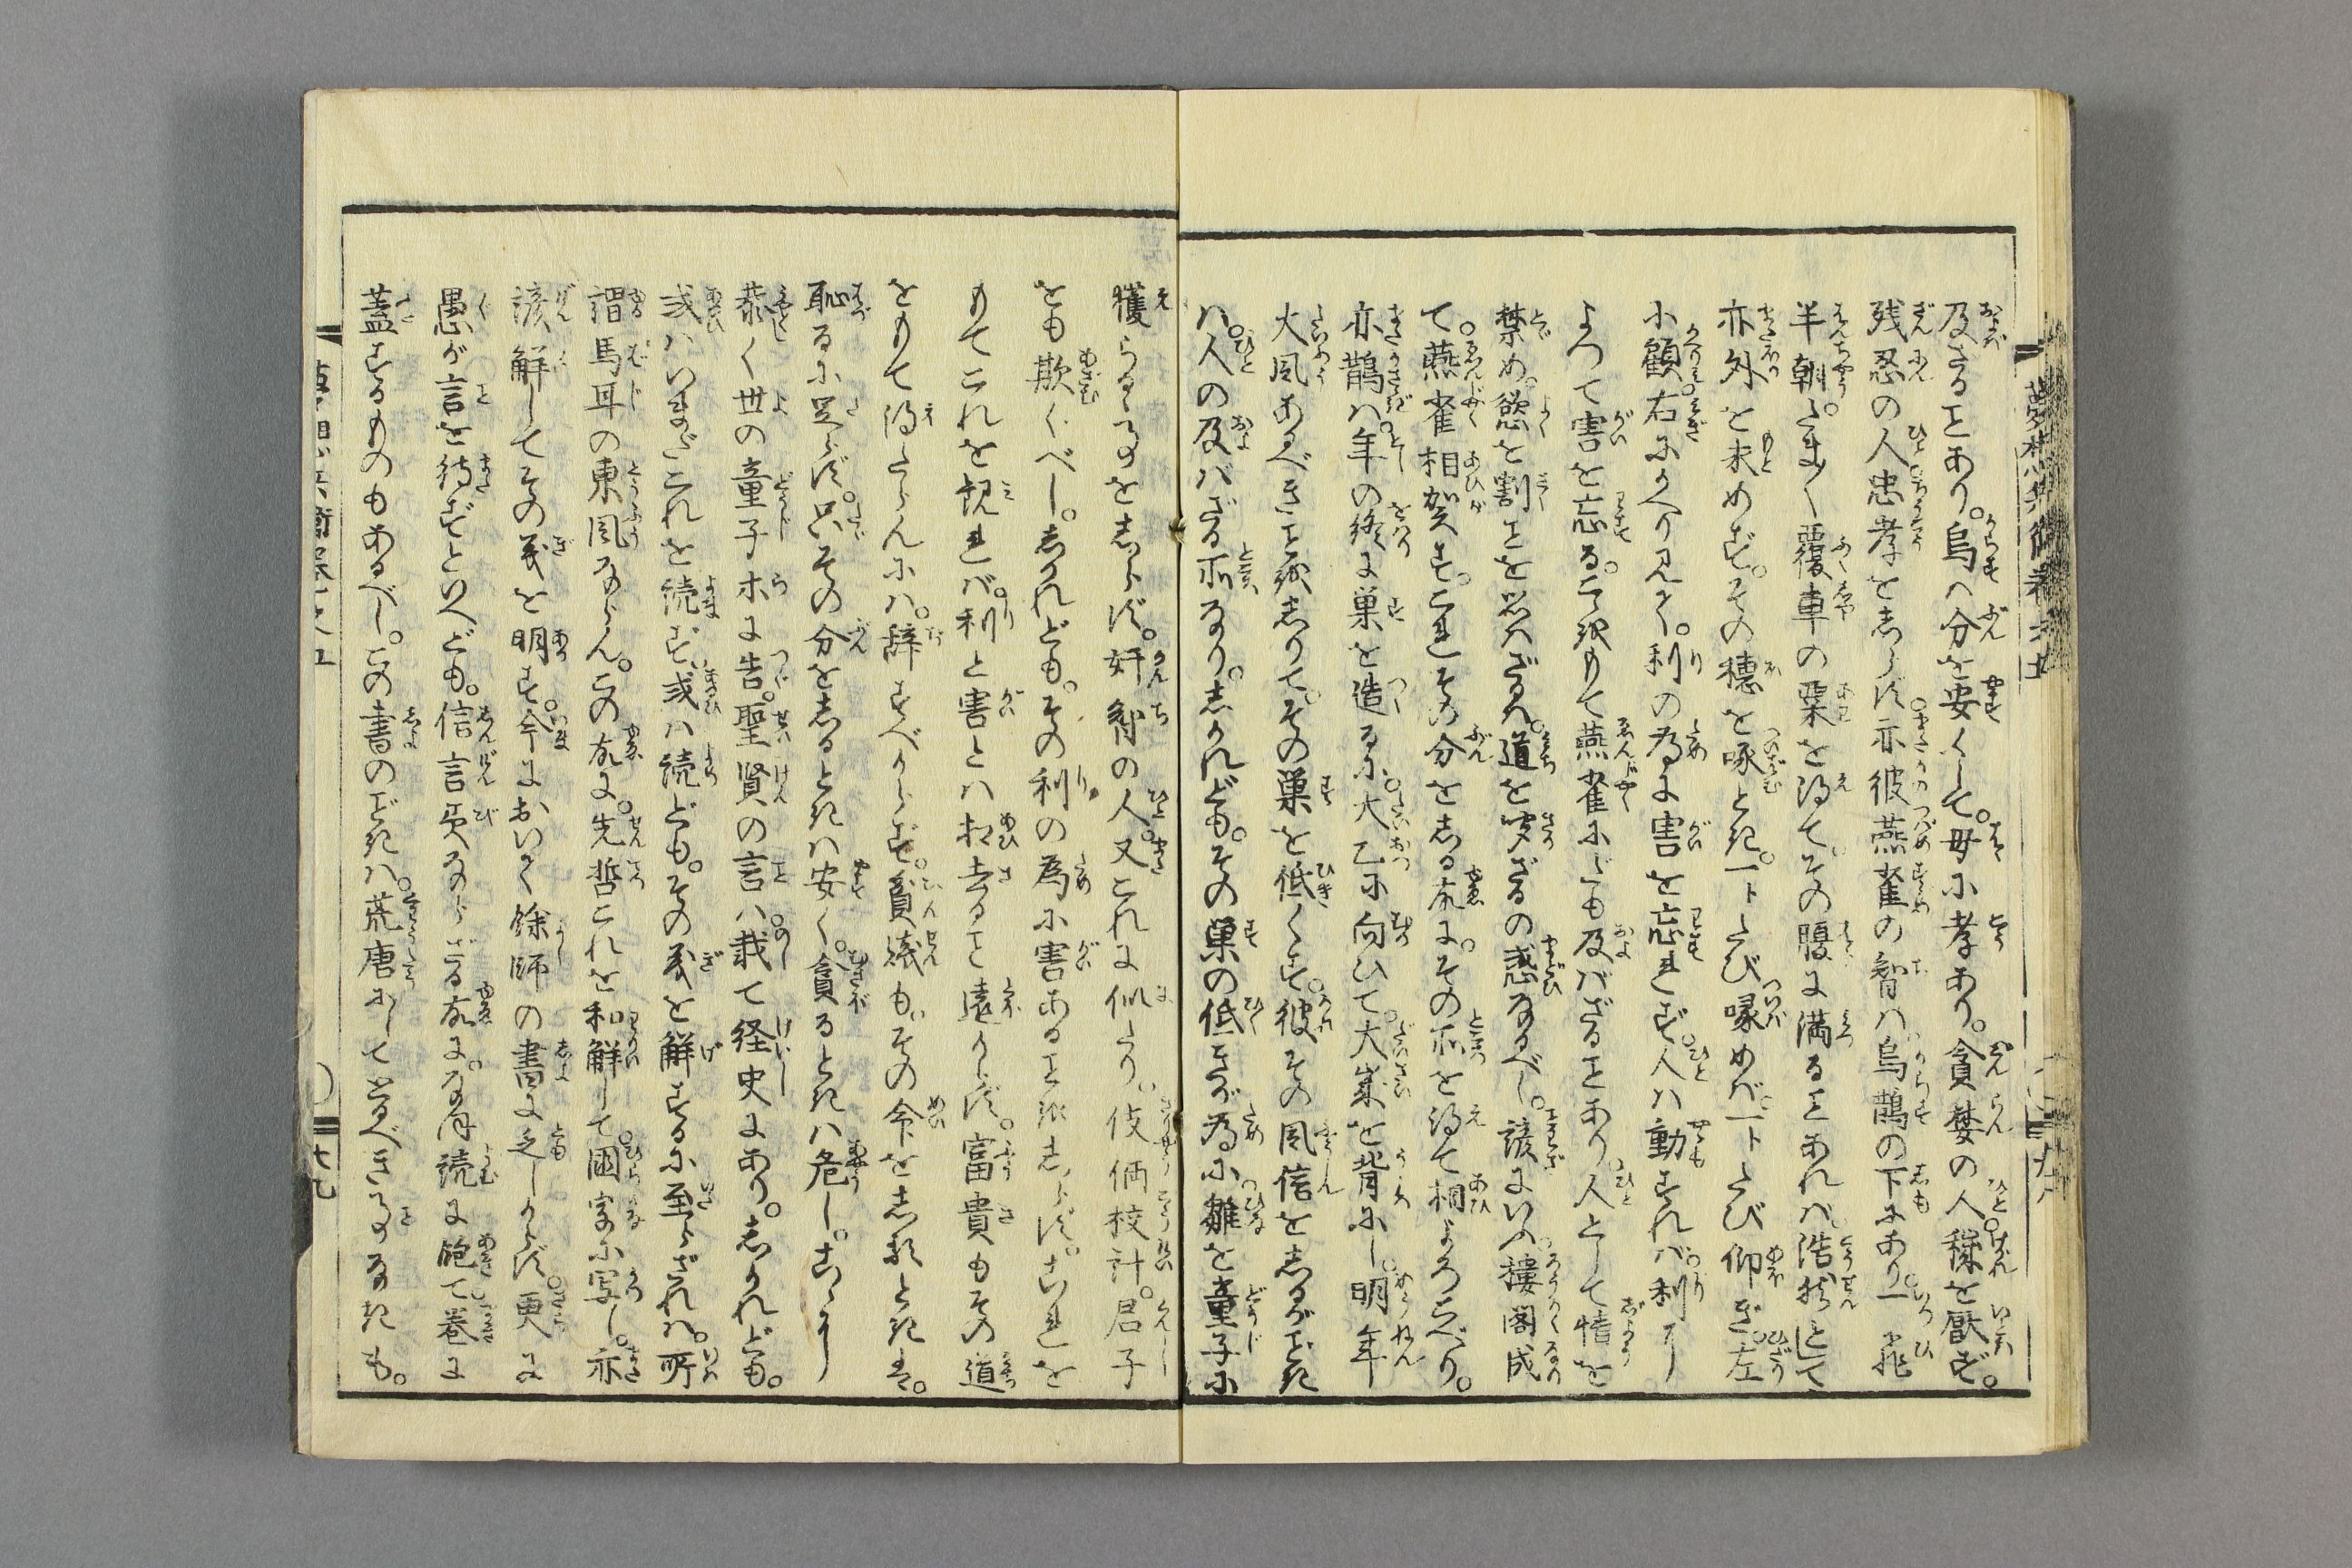 及ざることあり。烏は分を安くして。母に孝あり。貪婪の人穢を厭ず。
残忍の人忠孝をしらず。亦彼燕雀の智は烏鵲の下にあり。一飛
半朝。たま〳〵覆車の粟を得て。その腹に満ることあれば浩然として
亦外を求めず。その穂を啄とき。一トたび啄めば一トたび仰ぎ。左
に顧右にかへり見て。利の為に害を忘れず。人は動すれば。利に
よつて害を忘る。こゝをもて燕雀にだも及ばざることあり。人として情を
禁め。慾を割ことを思はざれば。道を聞ざるの惑なるべし。諺にいふ楼閣成
て。燕雀相賀す。これその分をしる故に。その所を得て相よろこべり。
亦鵲は。年の終に巣を造るに。太乙に向ひて。太歳を背にし。明年
大風あるべきことをしりて。その巣を低くす。彼その風信をしるがごときは
人の及ばざる所なり。しかれども。その巣の低きが為に。雛を童子に
獲らるゝことをしらず。奸智の人。又これに似たり。伎倆校計。君子
をも欺くべし。しかれども。その利の為に害あることをしらず。これを
もてこれを観れば。利と害とは相去ること遠からず。富貴もその道
をもて得たらんには。辞すべからず。貧賤も。その命をしるときは。
恥るに足らず。只その分をしるときは安く。貪るときは危し。こゝに
恭く世の童子ホに告。聖賢の言は。載て経史にあり。しかれども。
或はいまだこれを読ず。或は読ども。その義を解するに至らざれば。所
謂馬耳の東風ならん。この故に。先哲これを和解して。国字に写し。亦
諺解してその義を明す。今において餘師の書に乏しからず。更に
愚が言を待ずといへども。信言美ならざる故に。なほ読に飽て。巻に
蓋するものもあるべし。この書のごときは。荒唐にしてとるべきことなきも。